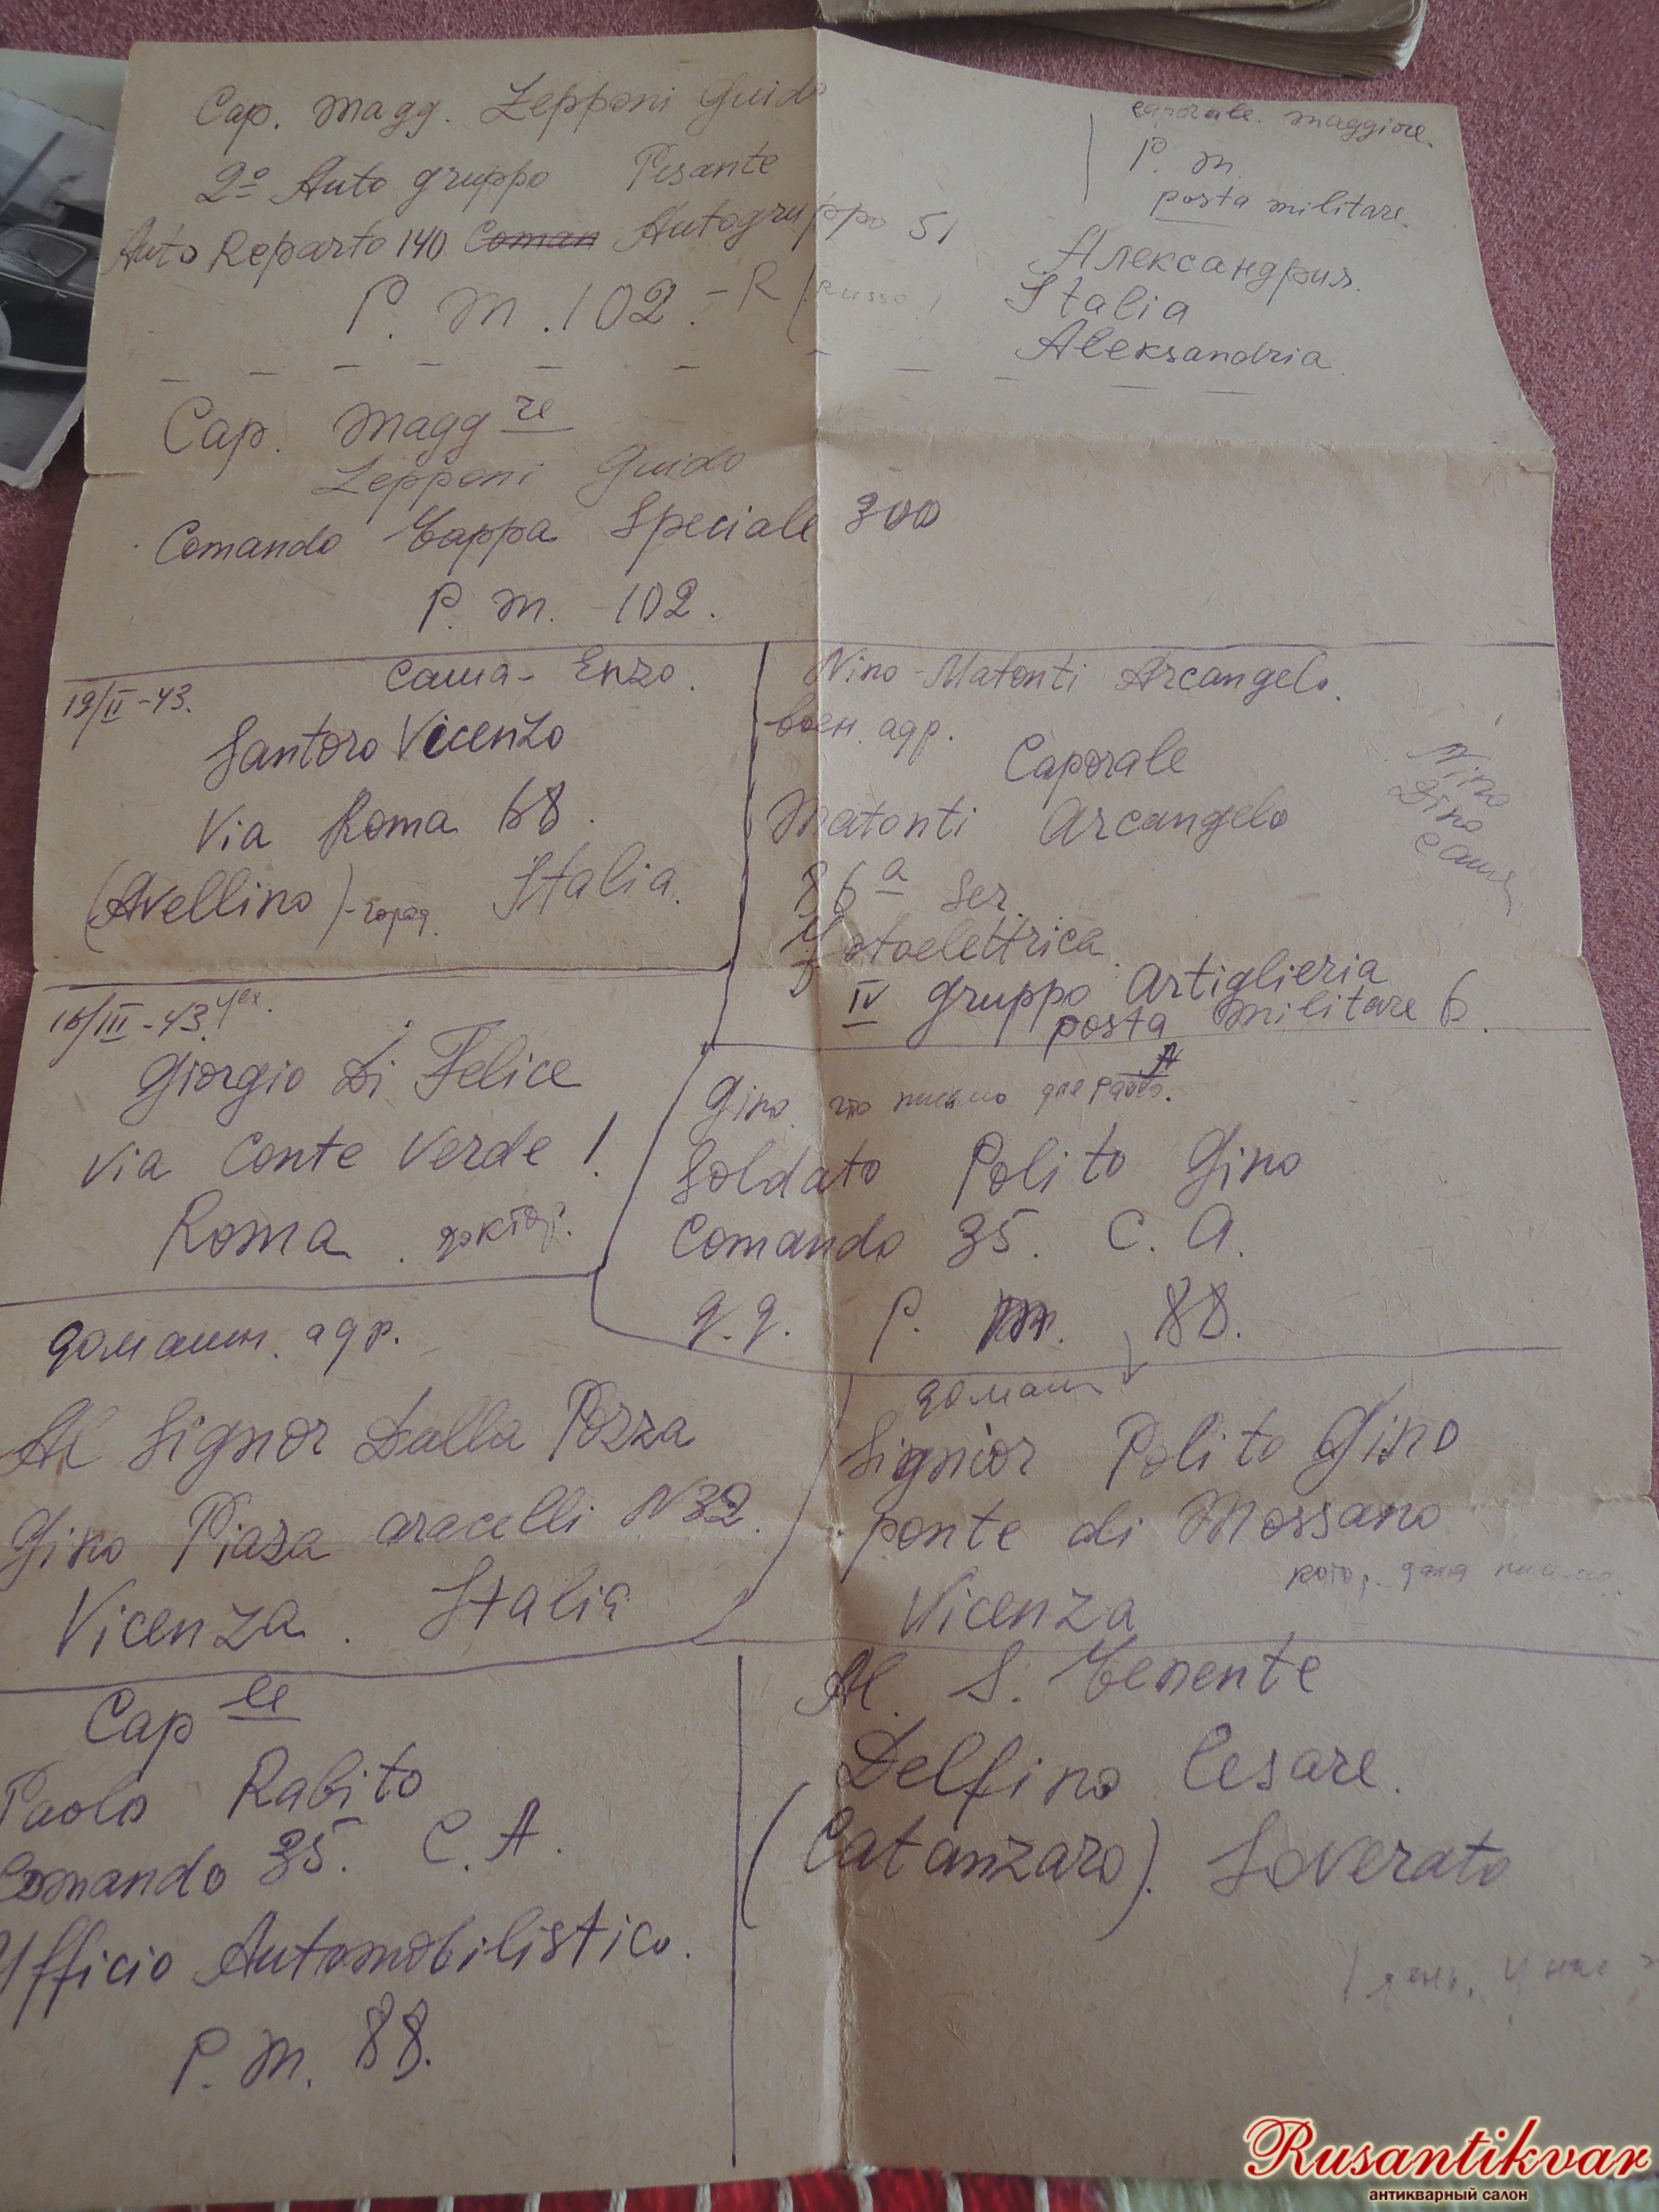 Cap. Magg. Zepponi Guido
2º Auto gruppo Pesante
Auto Reparto 140 Coman Autogruppo 51
P. M. 102. - R (Russo)
caporale. maggiore.
P. M.
posta militare.
Александрия.
Italia
Aleksandria
Cap. Magg re
Zepponi Guido
Comando Tappa Speciale 300
P. M. 102.
19/II-43. Саша - Enzo.
Santoro Vicenzo
Via Roma 68.
(Avellino) - город. Italia.
Nino - Matonti Arcangelo.
воен. адр.
Caporale
Matonti Arcangelo
86 a Ser.
fotoelettrica.
IV gruppo Artiglieria
posta militare 6.
Nino
Dino
Саша
16/III-43. уех.
Giorgio Di Felice
Via Conte Verde 1.
Roma.
Gino. что письмо для
Soldato Polito Gino
Comando 35. C. A.
q. g. P. M. 88.
домашн. адр.
Al Signor Dalla Pozza
Gino Piaza aracelli N32.
Vicenza. Italia
домашн
Signior Polito Gino
ponte di Mossano
Vicenza
Cap le
Paolo Rabito
Comando 35. C. A.
Ufficio Automobilistico.
P. M. 88.
Al. S. Tenente
Delfino Cesare.
(Catanzaro). Soverato
Rusantikvar
антикварный салон